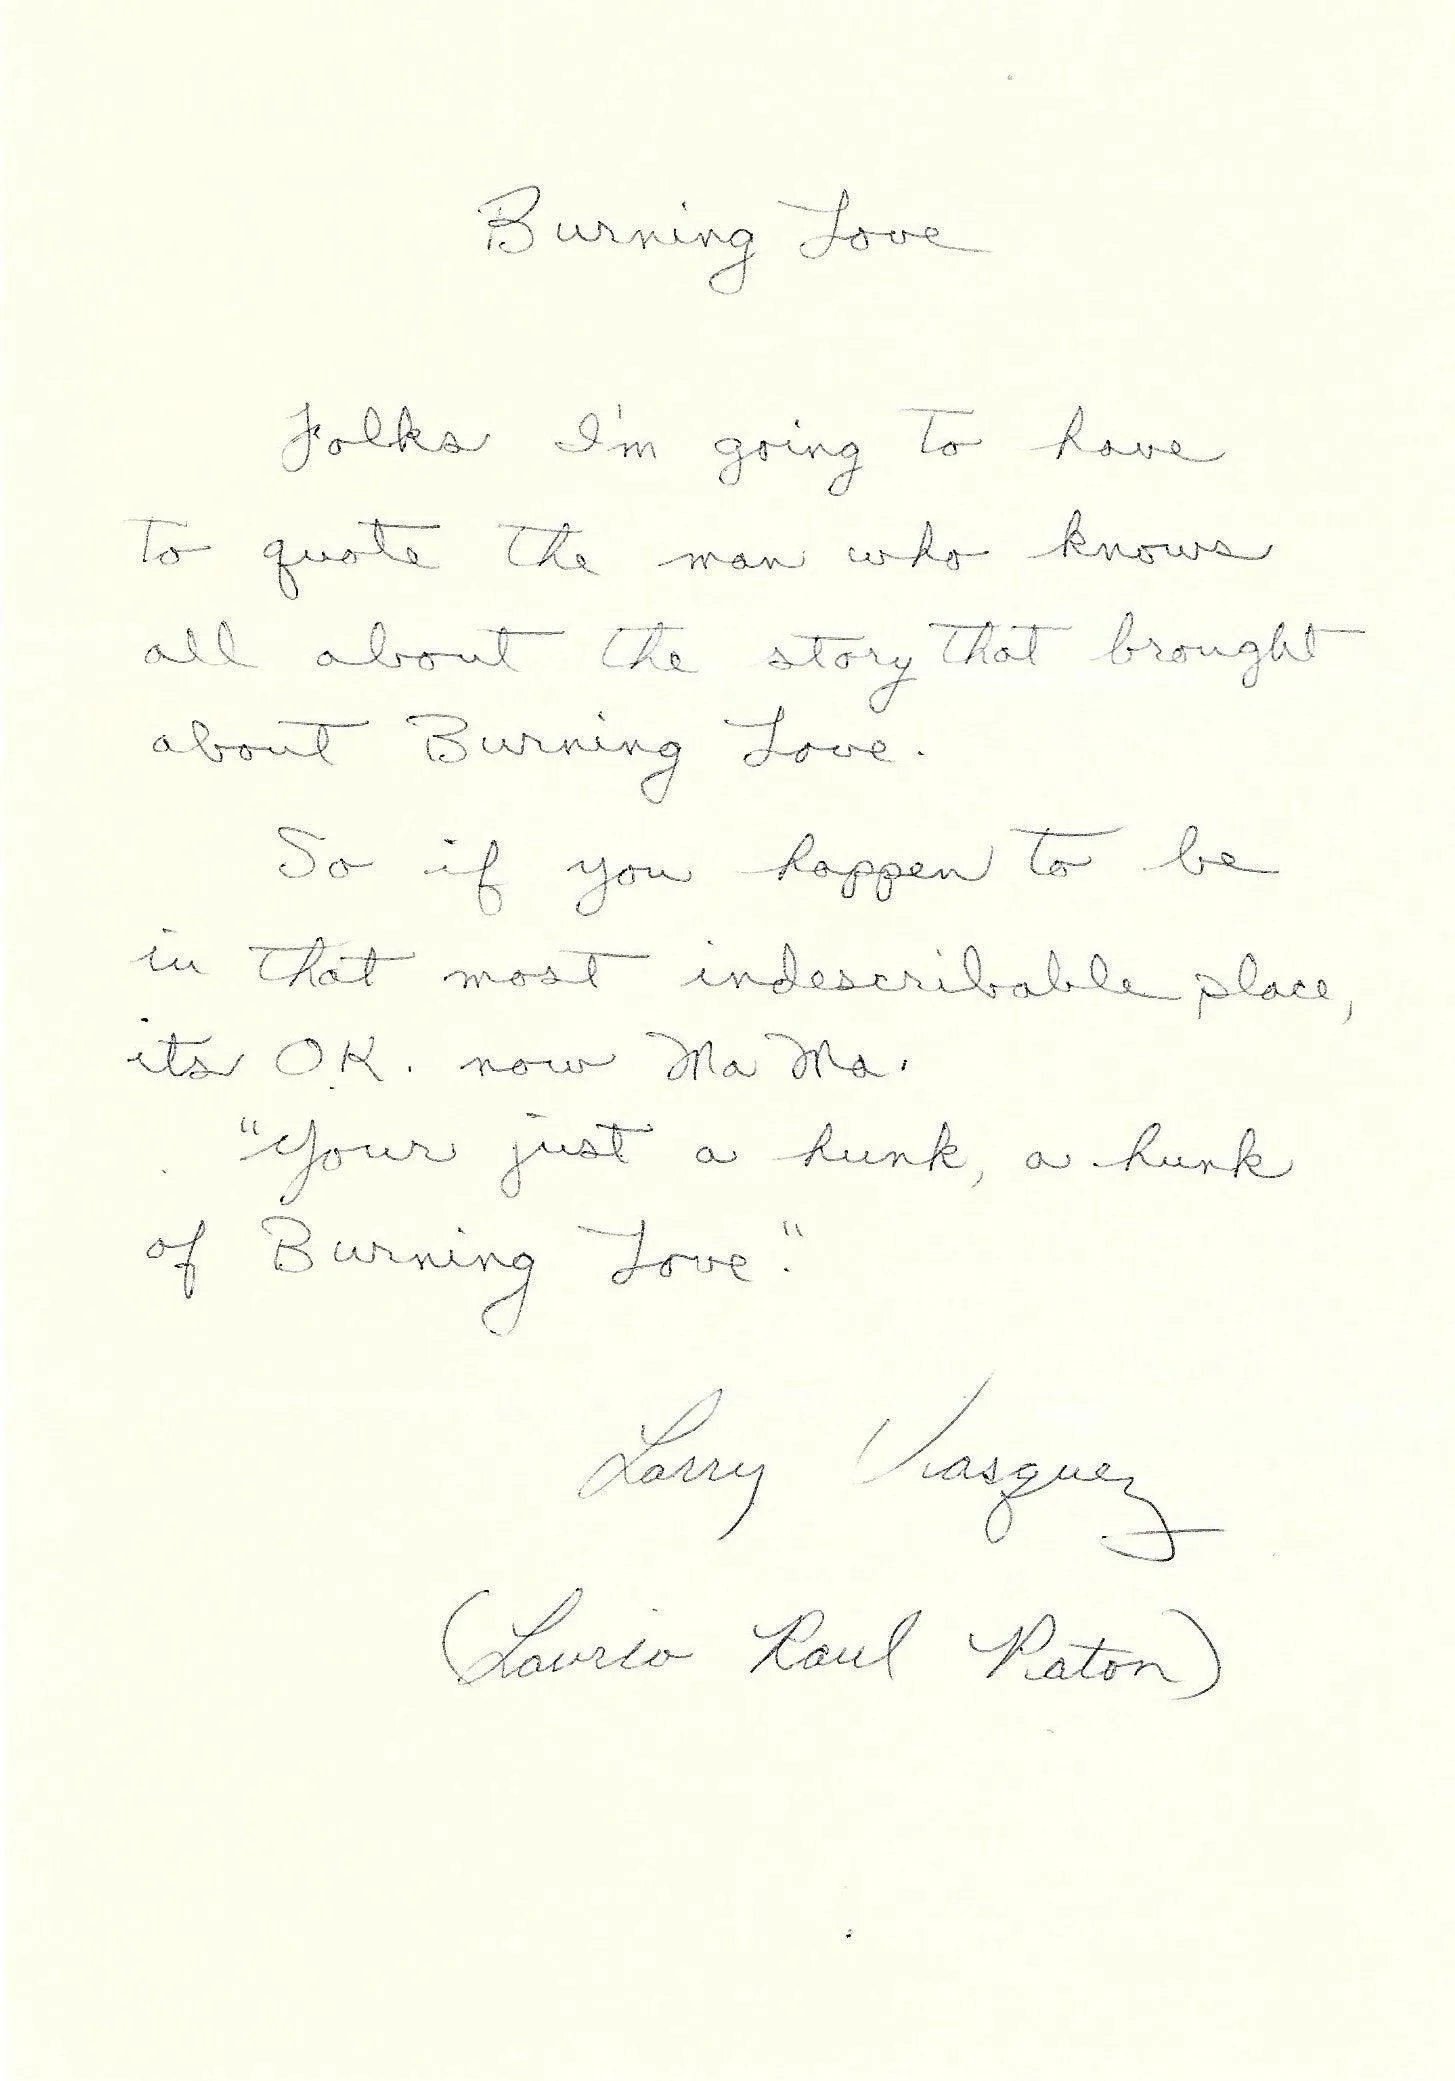 Burning Love
Folks I'm going to have
to quote the man who knows
all about the story that brought
about Burning Love.
So if you happen to be
in that most indescribable place,
its O.K. now Ma Ma.
"Your just a hunk, a hunk
of Burning Love."
Larry Vasquez
(Raul Paton)